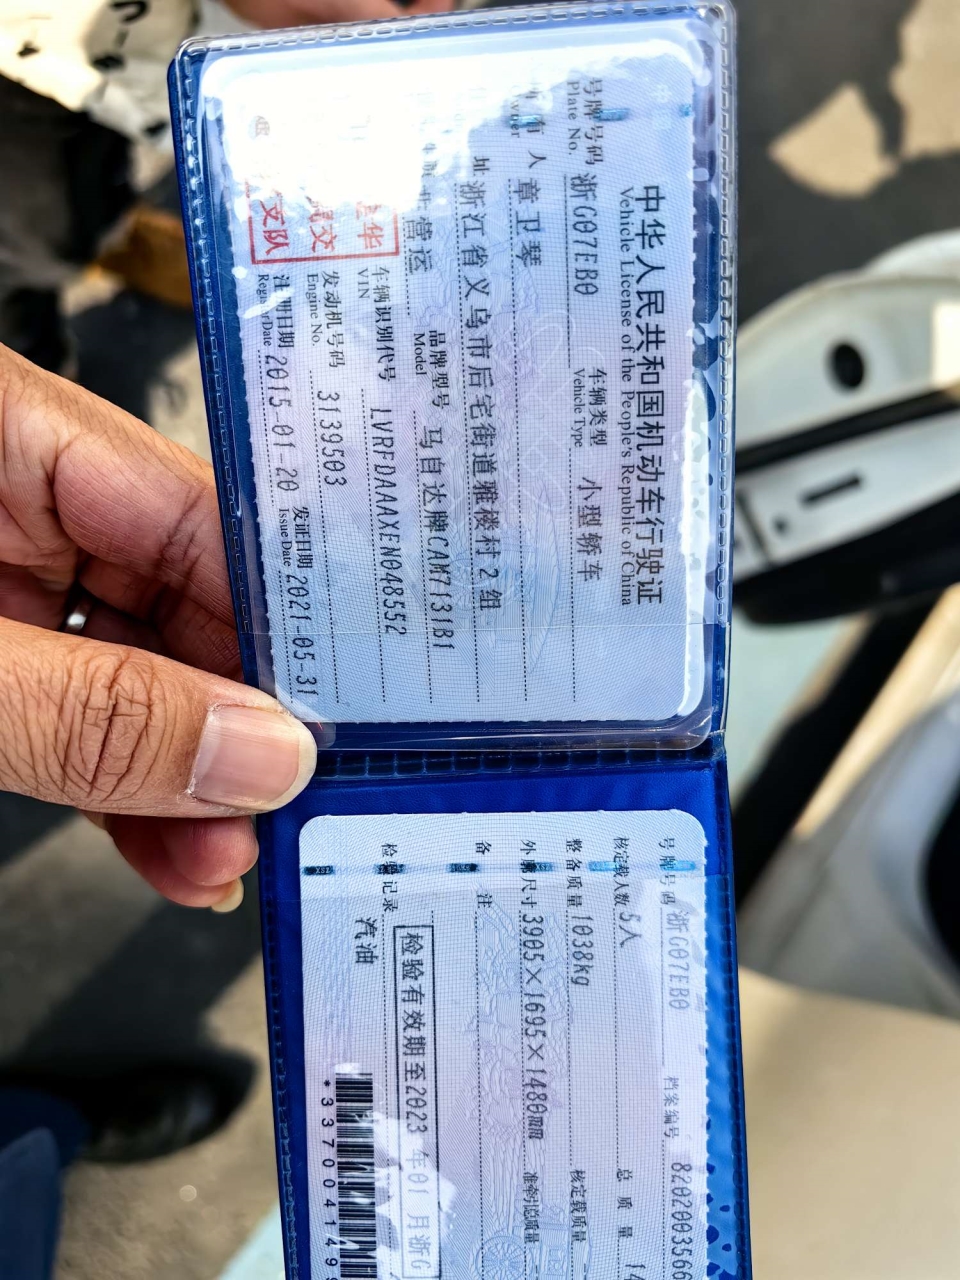 中华人民共和国机动车行驶证
Vehicle License of the People's Republic of China
号牌号码 浙G07EB0 车辆类型 小型轿车
Plate No. Vehicle Type
人 章卫琴
址 浙江省义乌市后宅街道雅楼村2组
营运 品牌型号 马自达牌CAM7131B1
Model
华 车辆识别代号 LVRFDAAAXEN048552
VIN
交 发动机号码 3139503
Engine No.
支队 注册日期 2015-01-20 发证日期 2021-05-31
Register Date Issue Date
号牌号码 浙G07EB0 档案编号 8202003566
核定载人数 5人 总质量 14
整备质量 1038kg 核定载质量
外廓尺寸 3905×1695×1480mm 准牵引总质量
备注
检验有效期至2023年01月浙G
检验记录
汽油
*3370041499